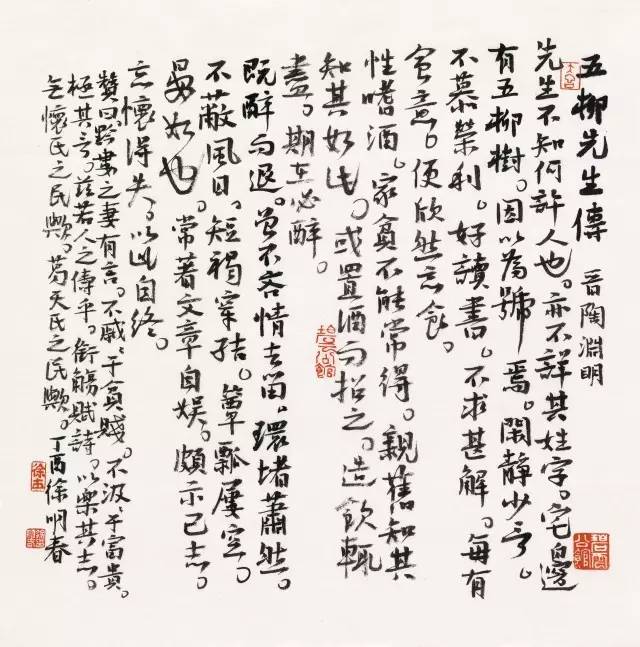 五柳先生傳 晉陶淵明
先生不知何許人也。亦不詳其姓字。宅邊
有五柳樹。因以為號焉。閑靜少言。
不慕榮利。好讀書。不求甚解。每有
會意。便欣然忘食。
性嗜酒。家貧不能常得。親舊知其
知其如此。或置酒而招之。造飲輒
盡。期在必醉。
既醉而退。曾不吝情去留。環堵蕭然。
不蔽風日。短褐穿結。簞瓢屢空。
晏如也。常著文章自娛。頗示己志。
忘懷得失。以此自終。
贊曰黔婁之妻有言。不戚〻于貧賤。不汲〻于富貴。
極其言。茲若人之儔乎。銜觴賦詩。以樂其志。
無懷氏之民歟。葛天氏之民歟。丁酉徐明春